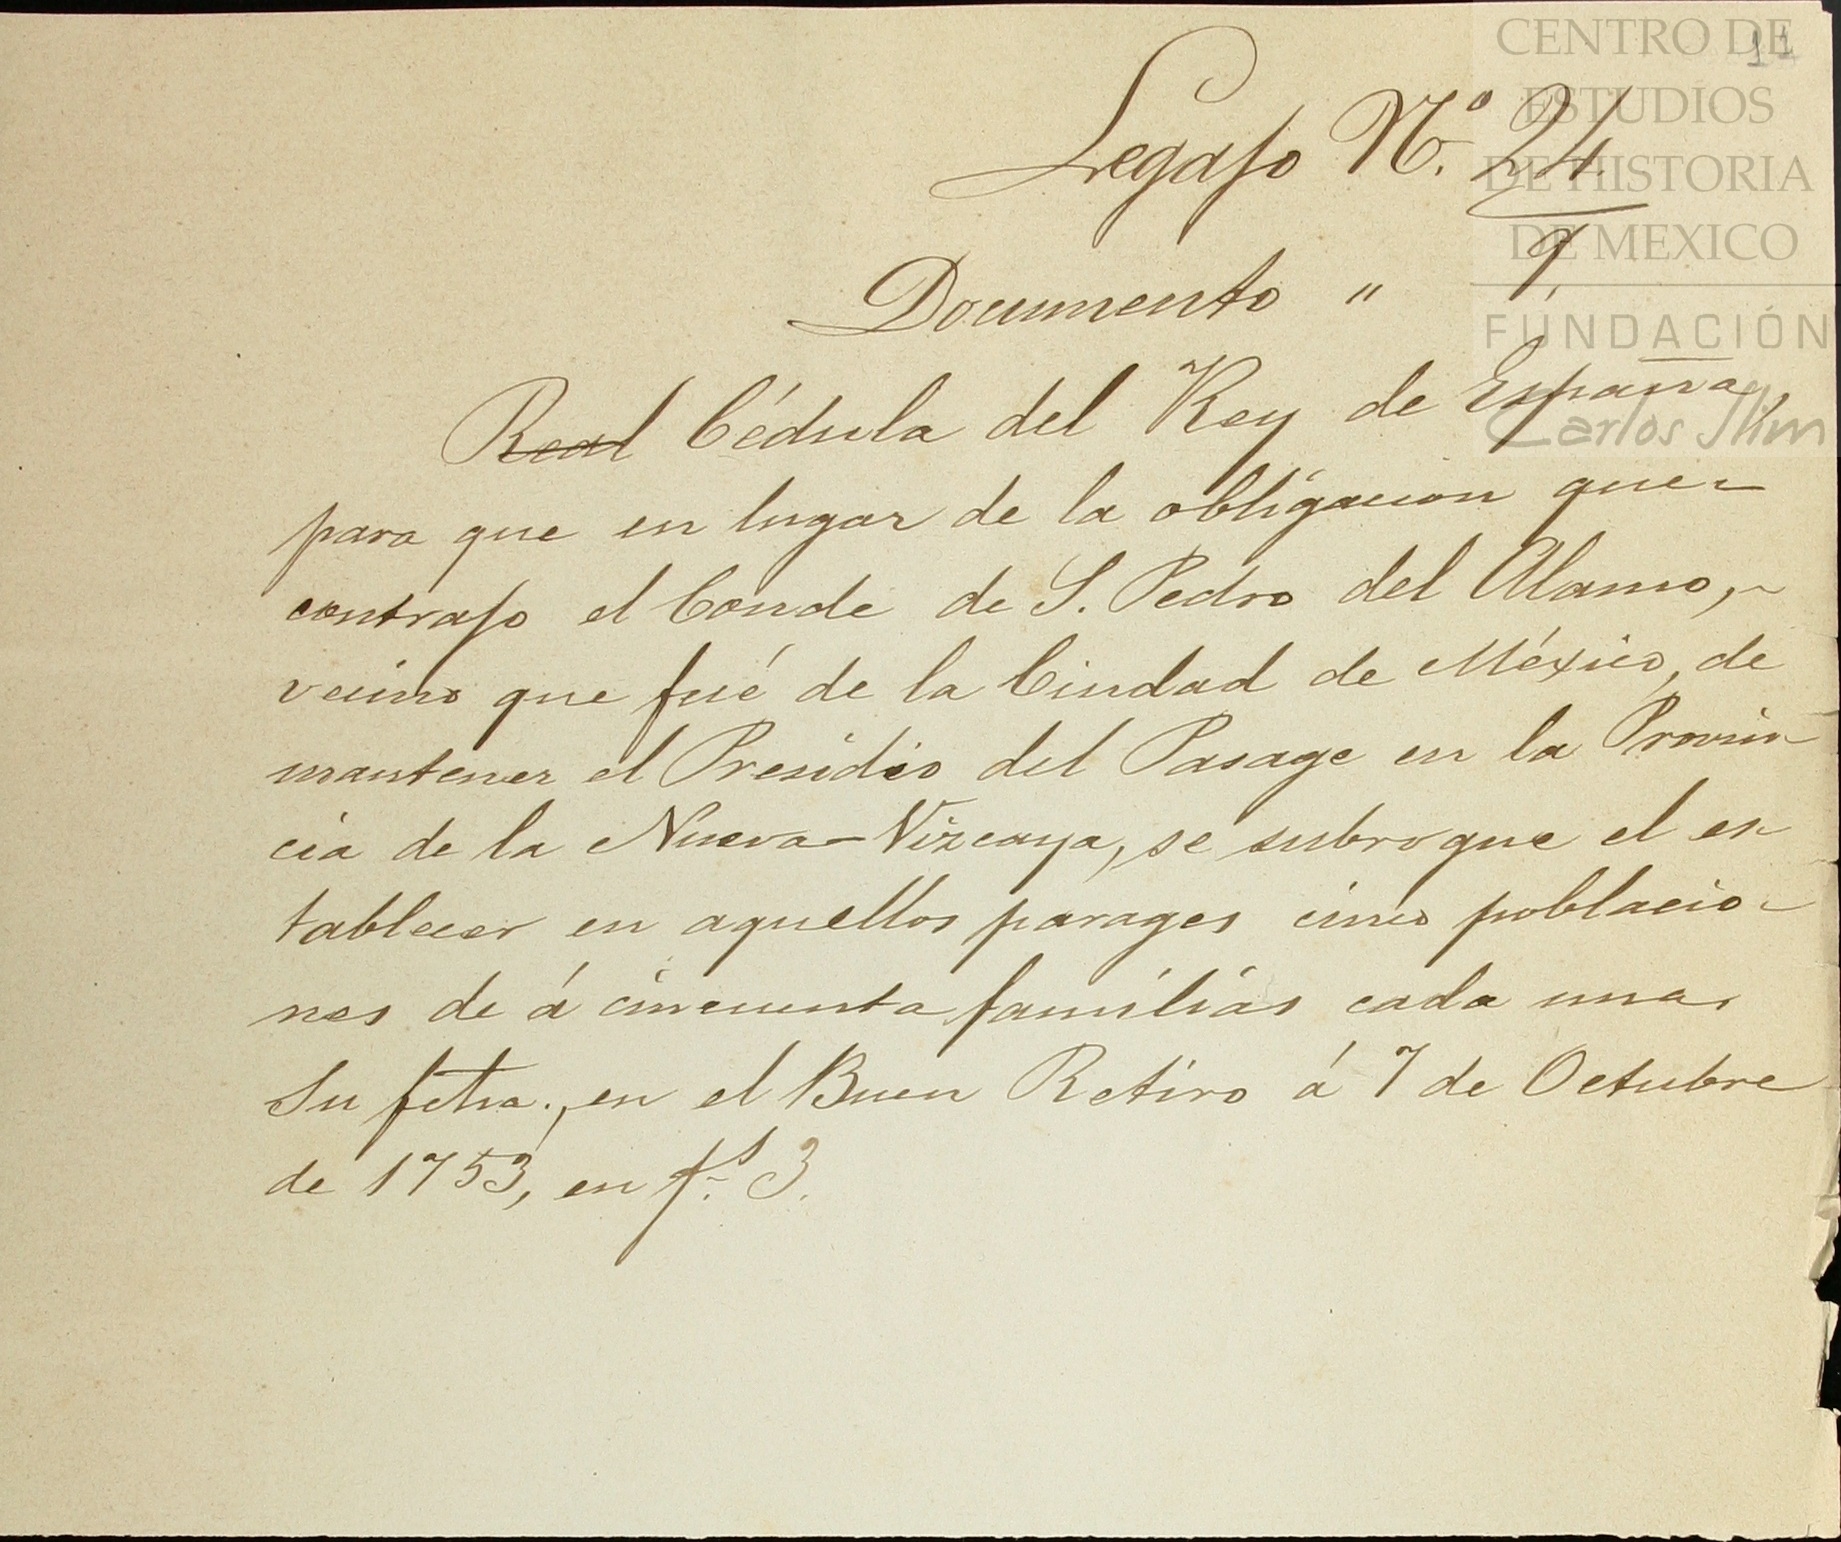 11
Legajo N.º 24
Documento " 9
Real Cédula del Rey de España,
para que en lugar de la obligacion que-
contrajo el Conde de S. Pedro del Alamo,-
vecino que fué de la Ciudad de México, de
mantener el Presidio del Pasage en la Provin-
cia de la Nueva-Vizcaya, se subrogue el es-
tablecer en aquellos parages cinco poblacio-
nes de á cincuenta familias cada una.
Su fcha., en el Buen Retiro á 7 de Octubre
de 1753, en f.s 3.
CENTRO DE
ESTUDIOS
DE HISTORIA
DE MEXICO
FUNDACIÓN
Carlos Slim